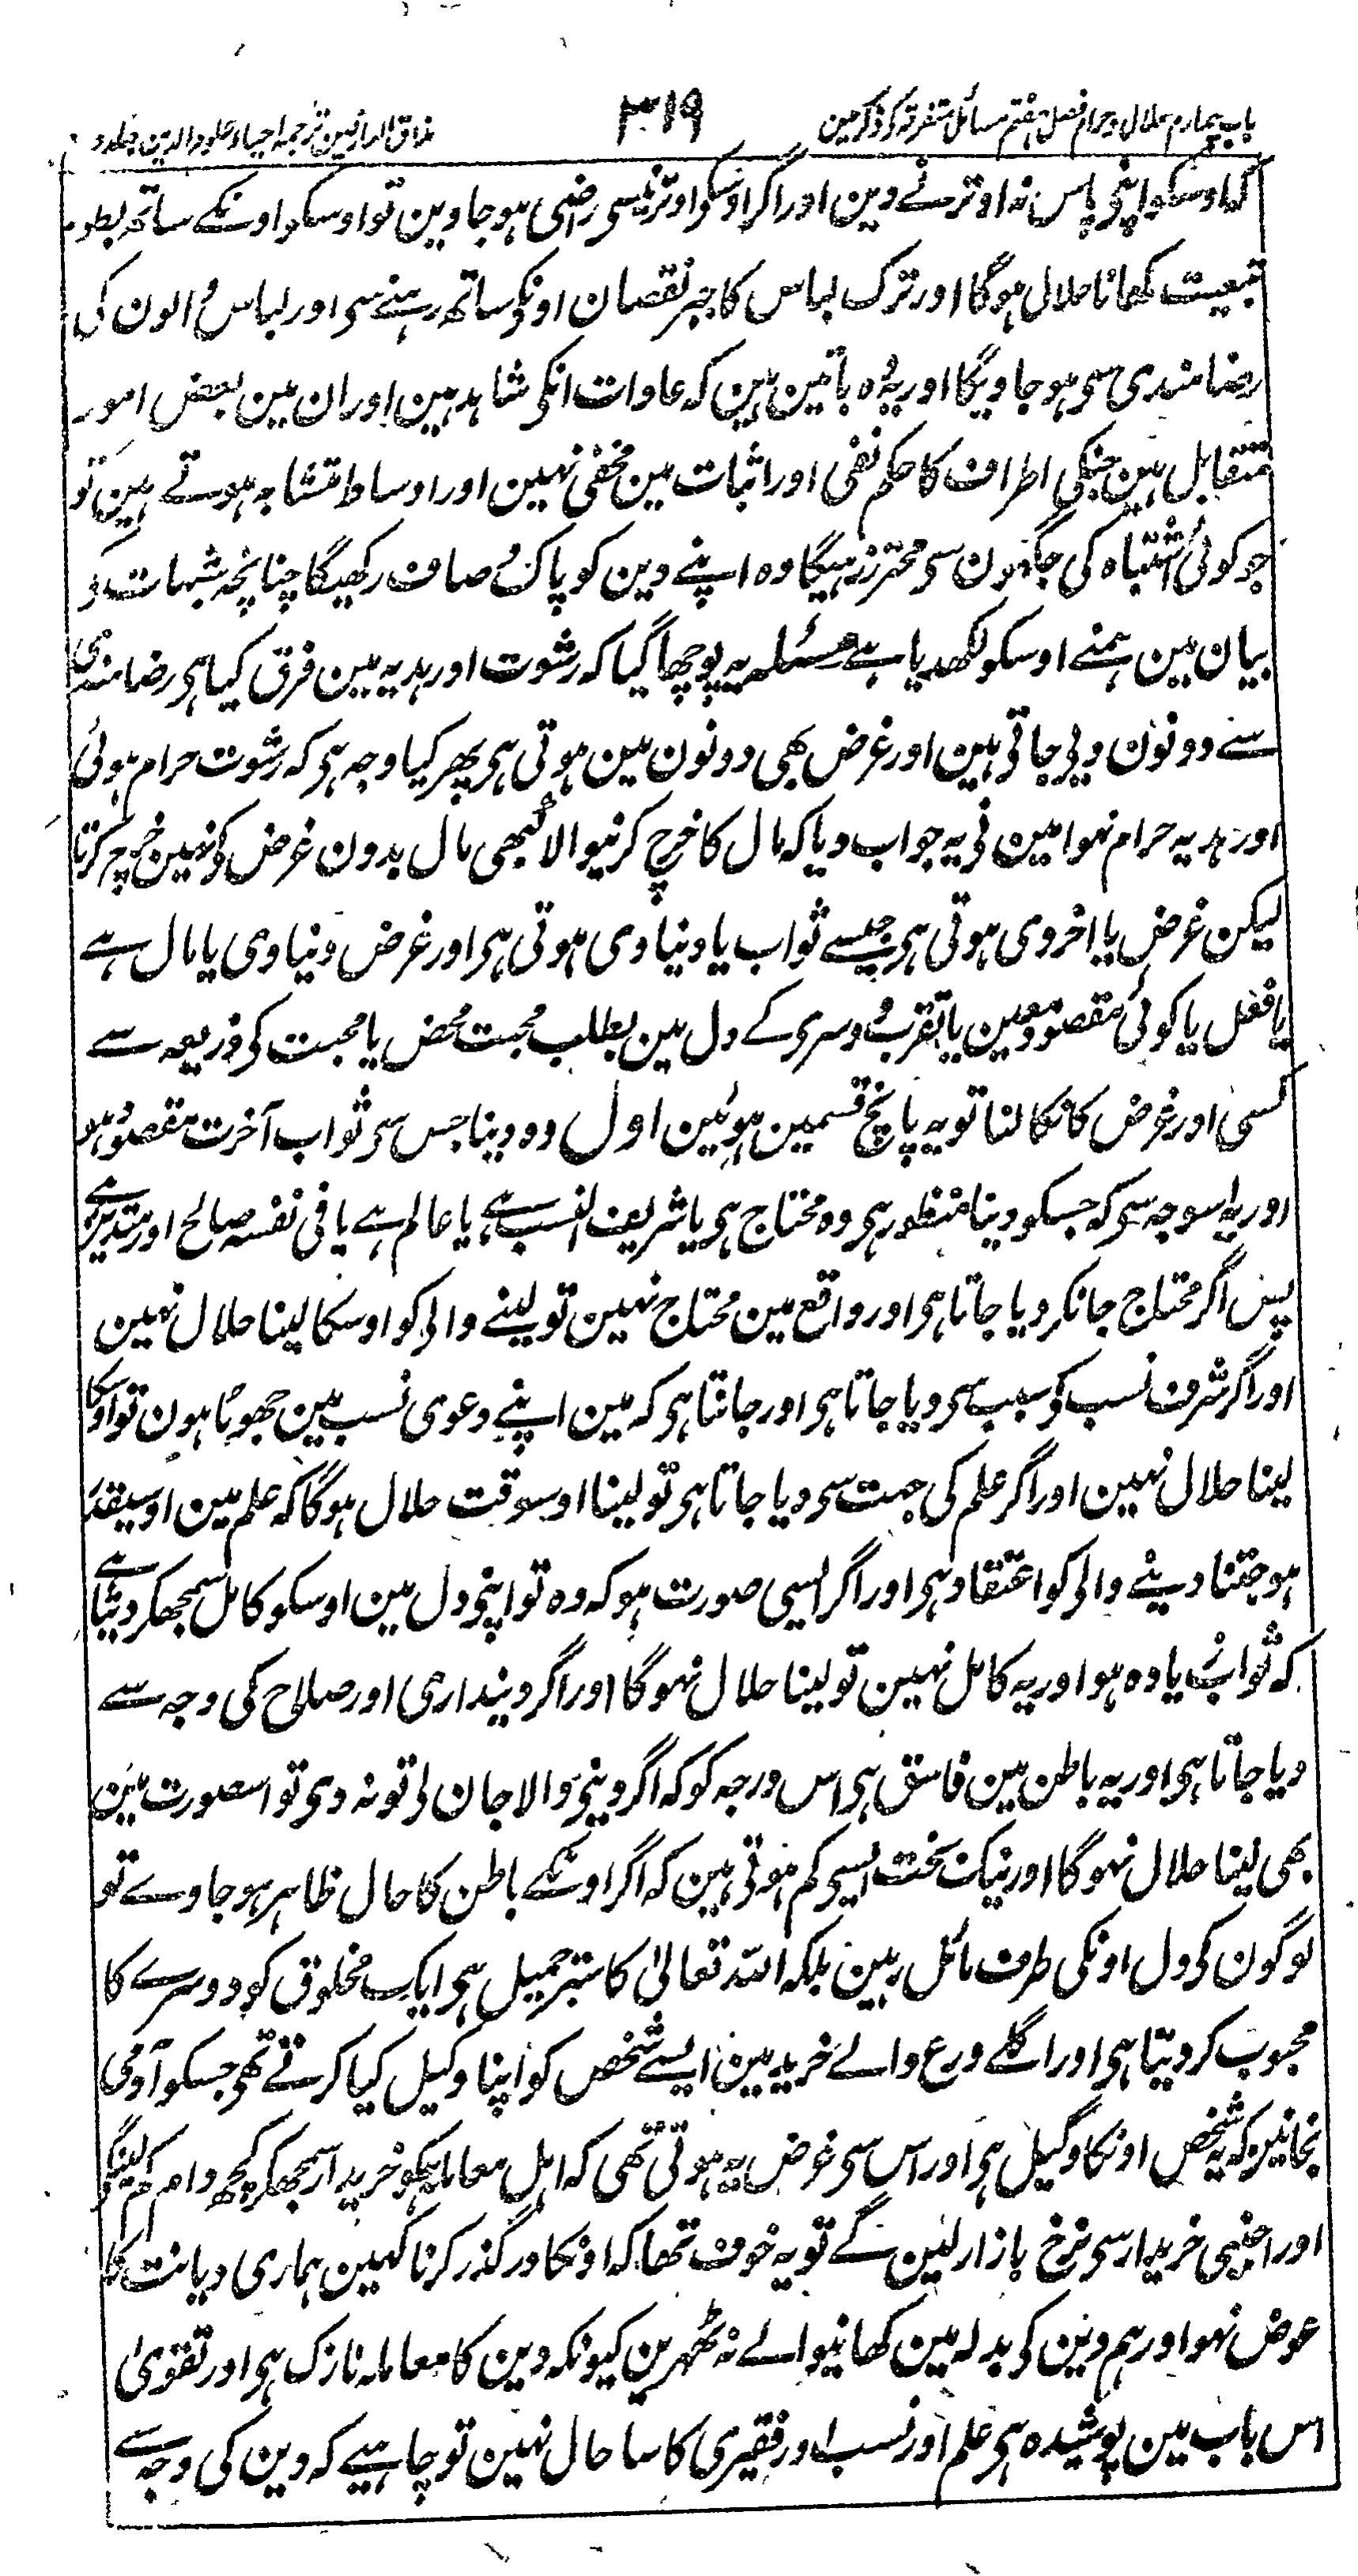 باب چہارم حلال وحرام فصل ہفتم مسائل متفرقہ کو ذکر مین
۳۱۹
مذاق العارفین ترجمہ احیاء علوم الدین جلد دو
کہ اوسکو اپنی پاس نہ اوترنے دین اور اگر اوسکو اوترنیسی راضی ہو جاوین تو اوسکو اونکے ساتھ بطور
تبعیت کھانا حلال ہوگا اور ترک لباس کا جبر نقصان اونکی ساتھ رہنے سی اور لباس والون کی
رضامندی سی ہو جاویگا اور یہ وہ باتین ہین کہ عادات انکی شاہد ہین اور ان مین بعض امور
متقابل ہین جنکی اطراف کا حکم نفی اور اثبات مین مخفی نہین اور اوساط متشابہ ہوتے ہین تو
جو کوئی اشتباہ کی جگہون سی محترز رہیگا وہ اپنے دین کو پاک و صاف رکھیگا چنانچہ شبہات کو
بیان مین ہمنے اوسکو لکھدیا ہے مسئلہ یہ پوچھا گیا کہ رشوت اور ہدیہ مین فرق کیا ہی رضامندی
سے دونون دیی جاتی ہین اور غرض بھی دونون مین ہوتی ہی پھر کیا وجہ ہی کہ رشوت حرام ہوئی
اور ہدیہ حرام نہوا مین نی یہ جواب دیا کہ مال کا خرچ کرنیوالا کبھی مال بدون غرض کو نہین خرچ کرتا
لیکن غرض یا اخروی ہوتی ہی جیسے ثواب یا دنیاوی ہوتی ہی اور غرض دنیاوی یا مال ہے
یا فعل یا کوئی مقصود معین یا تقرب دوسری کے دل مین بطلب محبت محض یا محبت کی ذریعہ سے
کسی اور غرض کا نکالنا تو یہ پانچ قسمین ہوئین اول وہ دینا جس سی ثواب آخرت مقصود ہو
اور یہ اسوجہ سی کہ جسکو دینا منظور ہی وہ محتاج ہی یا شریف النسب ہے یا عالم ہے یا فی نفسہ صالح اور متدین ہے
پس اگر محتاج جانکر دیا جاتا ہی اور واقع مین محتاج نہین تو لینے والی کو اوسکا لینا حلال نہین
اور اگر شرف نسب کو سبب سی دیا جاتا ہی اور جانتا ہی کہ مین اپنے دعوی نسب مین جھوٹا ہون تو اوسکا
لینا حلال نہین اور اگر علم کی جہت سی دیا جاتا ہی تو لینا اوسوقت حلال ہوگا کہ علم مین اوسیقدر
ہو جتنا دینے والی کو اعتقاد ہی اور اگر ایسی صورت ہو کہ وہ تو اپنی دل مین اوسکو کامل سمجھکر دیتا ہے
کہ ثواب زیادہ ہو اور یہ کامل نہین تو لینا حلال نہوگا اور اگر دینداری اور صلاح کی وجہ سے
دیا جاتا ہی اور یہ باطن مین فاسق ہی اس درجہ کو کہ اگر دینی والا جان لی تو نہ دی تو اسصورت مین
بھی لینا حلال نہوگا اور نیک بخت ایسی کم ہوتی ہین کہ اگر اونکے باطن کا حال ظاہر ہو جاوے تو
لوگون کی دل اونکی طرف مائل رہین بلکہ اللہ تعالیٰ کا ستر جمیل ہی ایک مخلوق کو دوسرے کا
محبوب کر دیتا ہی اور اگلے ورع والے خرید مین ایسے شخص کو اپنا وکیل کیا کرتے تھی جسکو آدمی
نجانین کہ یہ شخص اونکا وکیل ہی اور اس سی غرض یہ ہوتی تھی کہ اہل معاملہ ہمکو خریدار سمجھکر کچھ دام کم لینگے
اور اجنبی خریدار سی نرخ بازار لین گے تو یہ خوف تھا کہ اونکا درگذر کرنا کہین ہماری دیانت کا
عوض نہو اور ہم دین کی بدلہ مین کھانیوالے نہ ٹھہرین کیونکہ دین کا معاملہ نازک ہی اور تقویٰ
اس باب مین پوشیدہ ہی علم اور نسب اور فقیری کا سا حال نہین تو چاہیے کہ دین کی وجہ سے